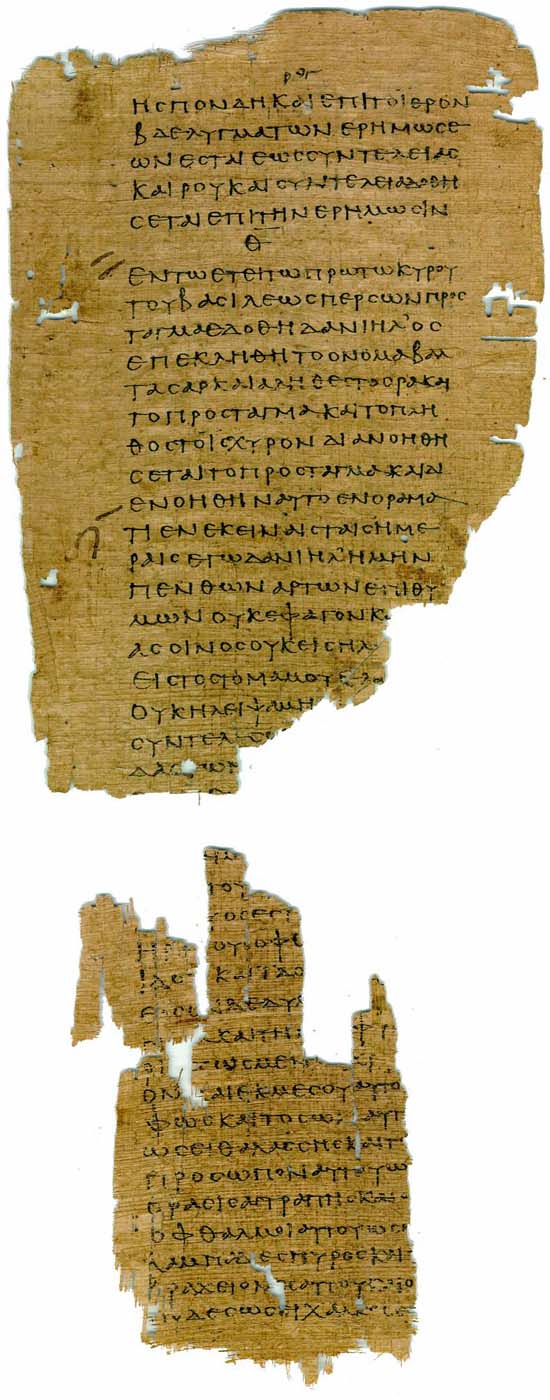 ΗϹΠΟΝΔΗΚΑΙΕΠΙΤΟΙΕΡΟΝ
ΒΔΕΛΥΓΜΑΤΩΝΕΡΗΜΩϹΕ
ΩΝΕϹΤΑΙΕΩϹϹΥΝΤΕΛΕΙΑϹ
ΚΑΙΡΟΥΚΑΙϹΥΝΤΕΛΕΙΑΔΟΘΗ
ϹΕΤΑΙΕΠΙΤΗΝΕΡΗΜΩϹΙΝ
Θ
ΕΝΤΩΕΤΕΙΤΩΠΡΩΤΩΚΥΡΟΥ
ΤΟΥΒΑϹΙΛΕΩϹΠΕΡϹΩΝΠΡΟϹ
ΤΑΓΜΑΕΔΟΘΗΔΑΝΙΗΛΟϹ
ΕΠΕΚΛΗΘΗΤΟΟΝΟΜΑΒΑΛ
ΤΑϹΑΡΚΑΙΑΛΗΘΕϹΤΟΟΡΑΚΑΙ
ΤΟΠΡΟϹΤΑΓΜΑΚΑΙΤΟΠΛΗ
ΘΟϹΤΟΙϹΧΥΡΟΝΔΙΑΝΟΗΘΗ
ϹΕΤΑΙΤΟΠΡΟϹΤΑΓΜΑΚΑΙΔΙ
ΕΝΟΗΘΗΝΑΥΤΟΕΝΟΡΑΜΑ
ΤΙΕΝΕΚΕΙΝΑΙϹΤΑΙϹΗΜΕ
ΡΑΙϹΕΓΩΔΑΝΙΗΛΗΜΗΝ
ΠΕΝΘΩΝΑΡΤΩΝΕΠΙΘΥ
ΜΙΩΝΟΥΚΕΦΑΓΟΝΚ
ΑϹΟΙΝΟϹΟΥΚΕΙϹΗΛ
ΕΙϹΤΟϹΤΟΜΑΜΟΥΕΛΑ
ΟΥΚΗΛΕΙΨΑΜΗ
ϹΥΝΤΕΛ
ΔΑϹ
ΤΟΥ
ΤΟϹΕϹΤ
ΟΥϹΟΦ
ΚΑΙΙΔΟ
ΚΑΙΤΗ
ΩϹΜΕΝ
ΟΝΚΑΙΕΚΜΕϹΟΥΑΥΤΟ
ΦΩϹΚΑΙΤΟϹΩΜΑΑΥΤ
ΩϹΕΙΘΑΛΑϹϹΗϹΚΑΙΤ
ΠΡΟϹΩΠΟΝΑΥΤΟΥΩ
ΟΡΑϹΙϹΑϹΤΡΑΠΗϹΚΑΙΟ
ΟΦΘΑΛΜΟΙΑΥΤΟΥΩϹ
ΛΑΜΠΑΔΕϹΠΥΡΟϹΚΑΙ
ΒΡΑΧΕΙΟΝΕϹΑΥΤΟΥΚΑΙΟ
ΠΟΔΕϹΩϹΕΙΧΑΛΚΟϹΕ